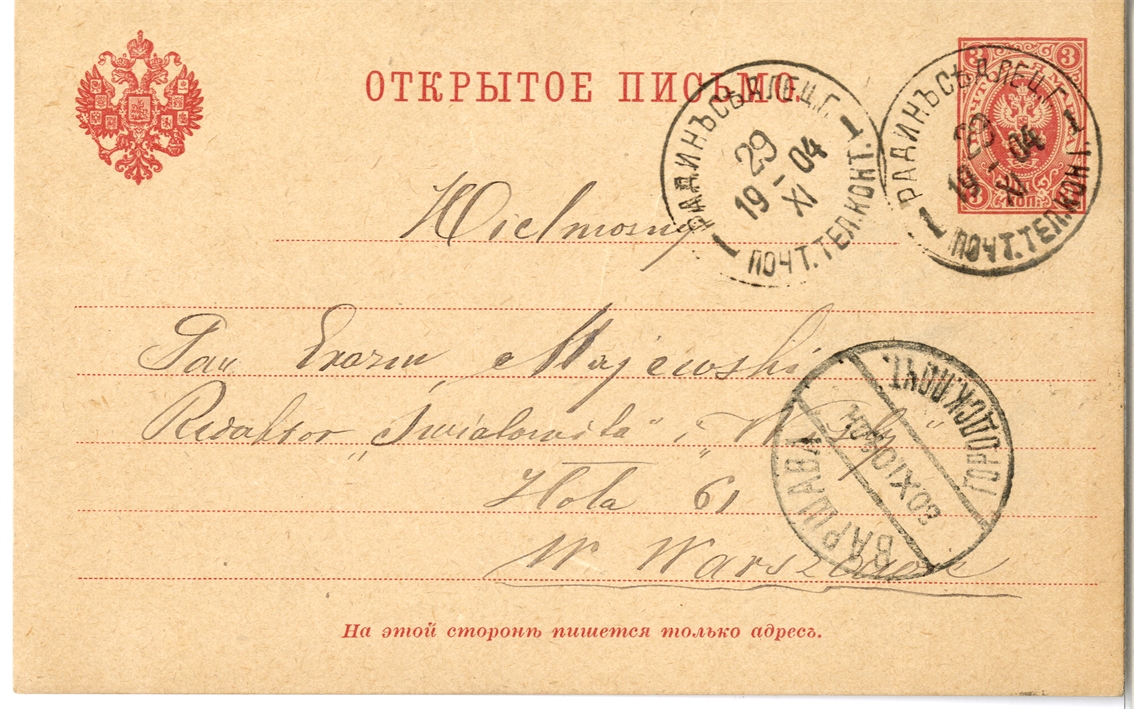 ОТКРЫТОЕ ПИСЬМО.
3 3
РАДИНЪ СѢДЛЕЦ. Г.
29
XI
19 04
1 1
ПОЧТ. ТЕЛ. КОНТ.
РАДИНЪ СѢДЛЕЦ. Г.
29
XI
19 04
1 1
ПОЧТ. ТЕЛ. КОНТ.
Wielmożny
Pan Erazm Majewski
Redaktor „Światowita” i
Hoża 61
W Warszawie
ВАРШАВА
ГОРОДСК. ПОЧТ.
На этой сторонѣ пишется только адресъ.